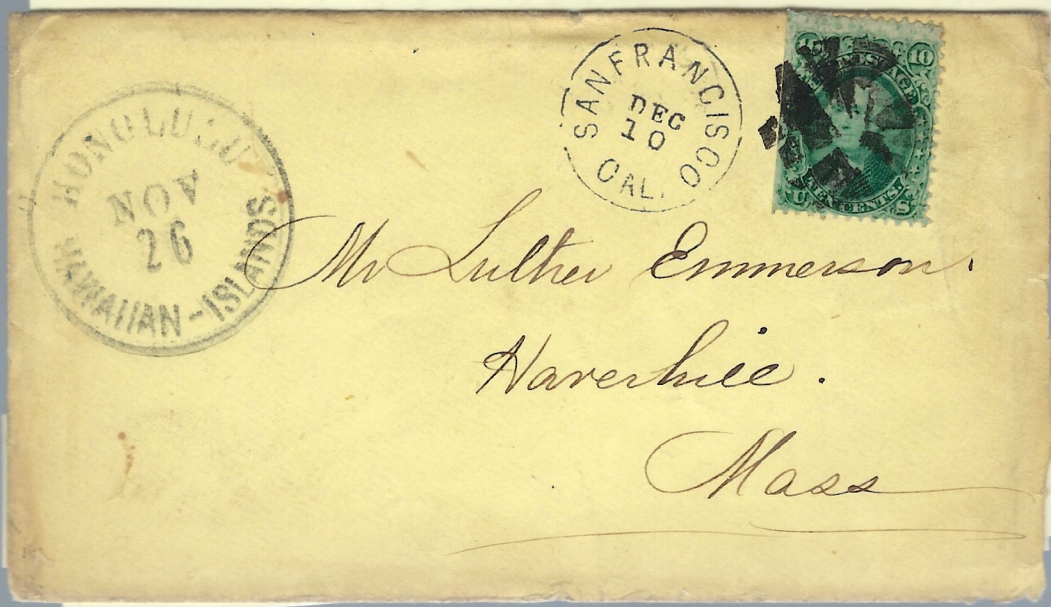 HONOLULU
NOV
26
HAWAIIAN-ISLANDS
SAN FRANCISCO
DEC
10
CAL.
10
U S
Mr Luther Emmerson.
Haverhill.
Mass